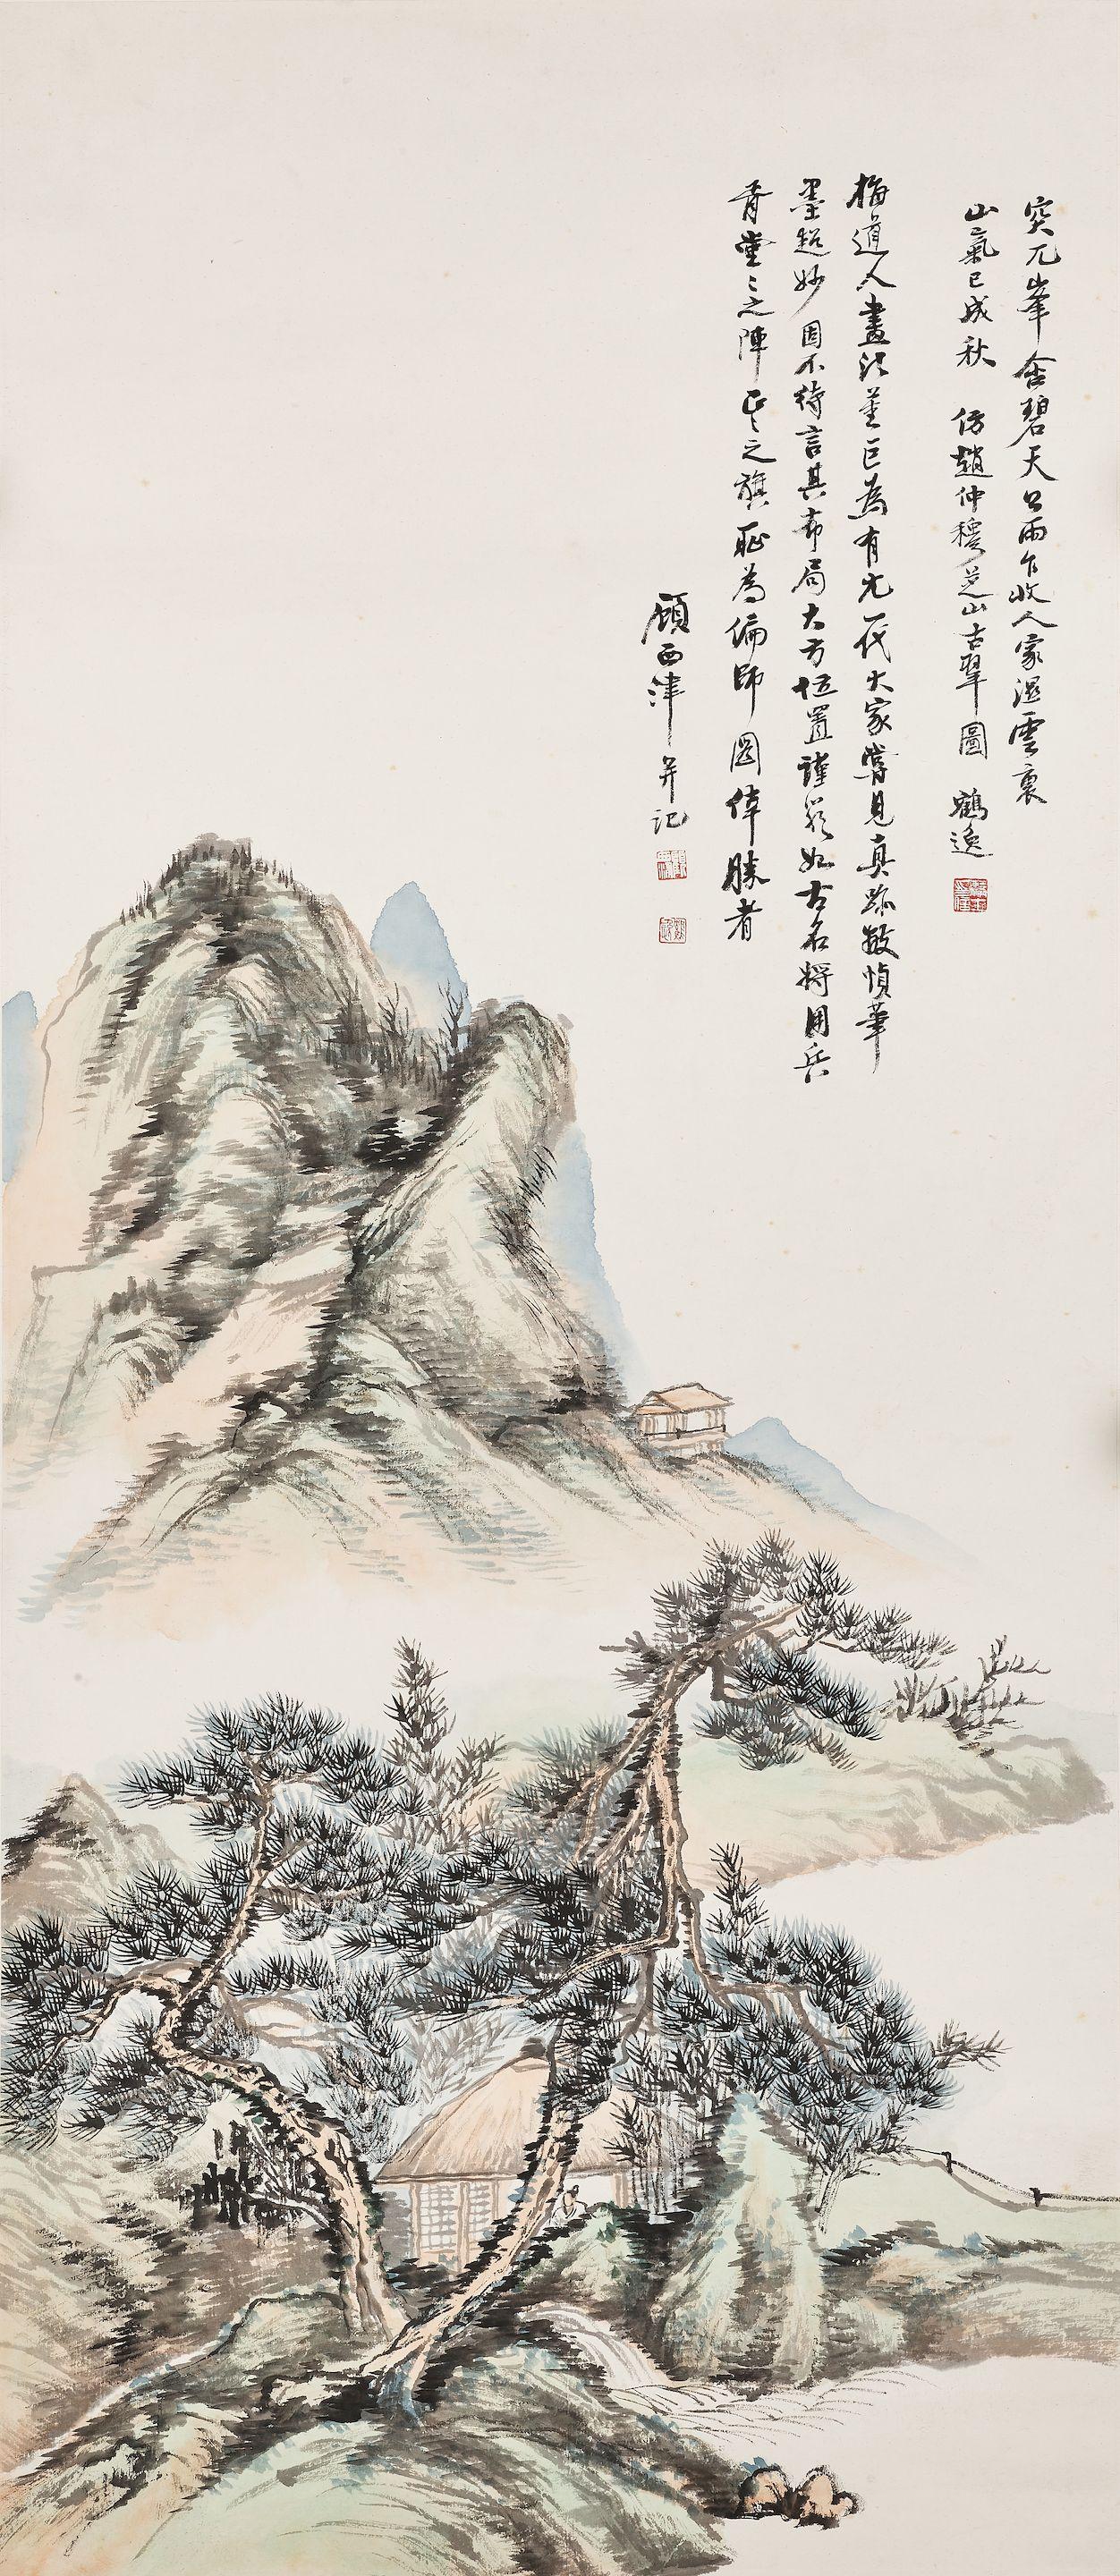 突兀峯含碧天空雨乍收人家湿雲裏
山氣已成秋 仿趙仲穆芝山古翠圖 鶴逸
梅道人畫法董巨為有元一代大家嘗見真跡數幀筆
墨超妙固不待言其布局大方位置謹嚴如古名將用兵
有堂〻之陣正〻之旗耻為偏師圖倖勝者
顧西津并記